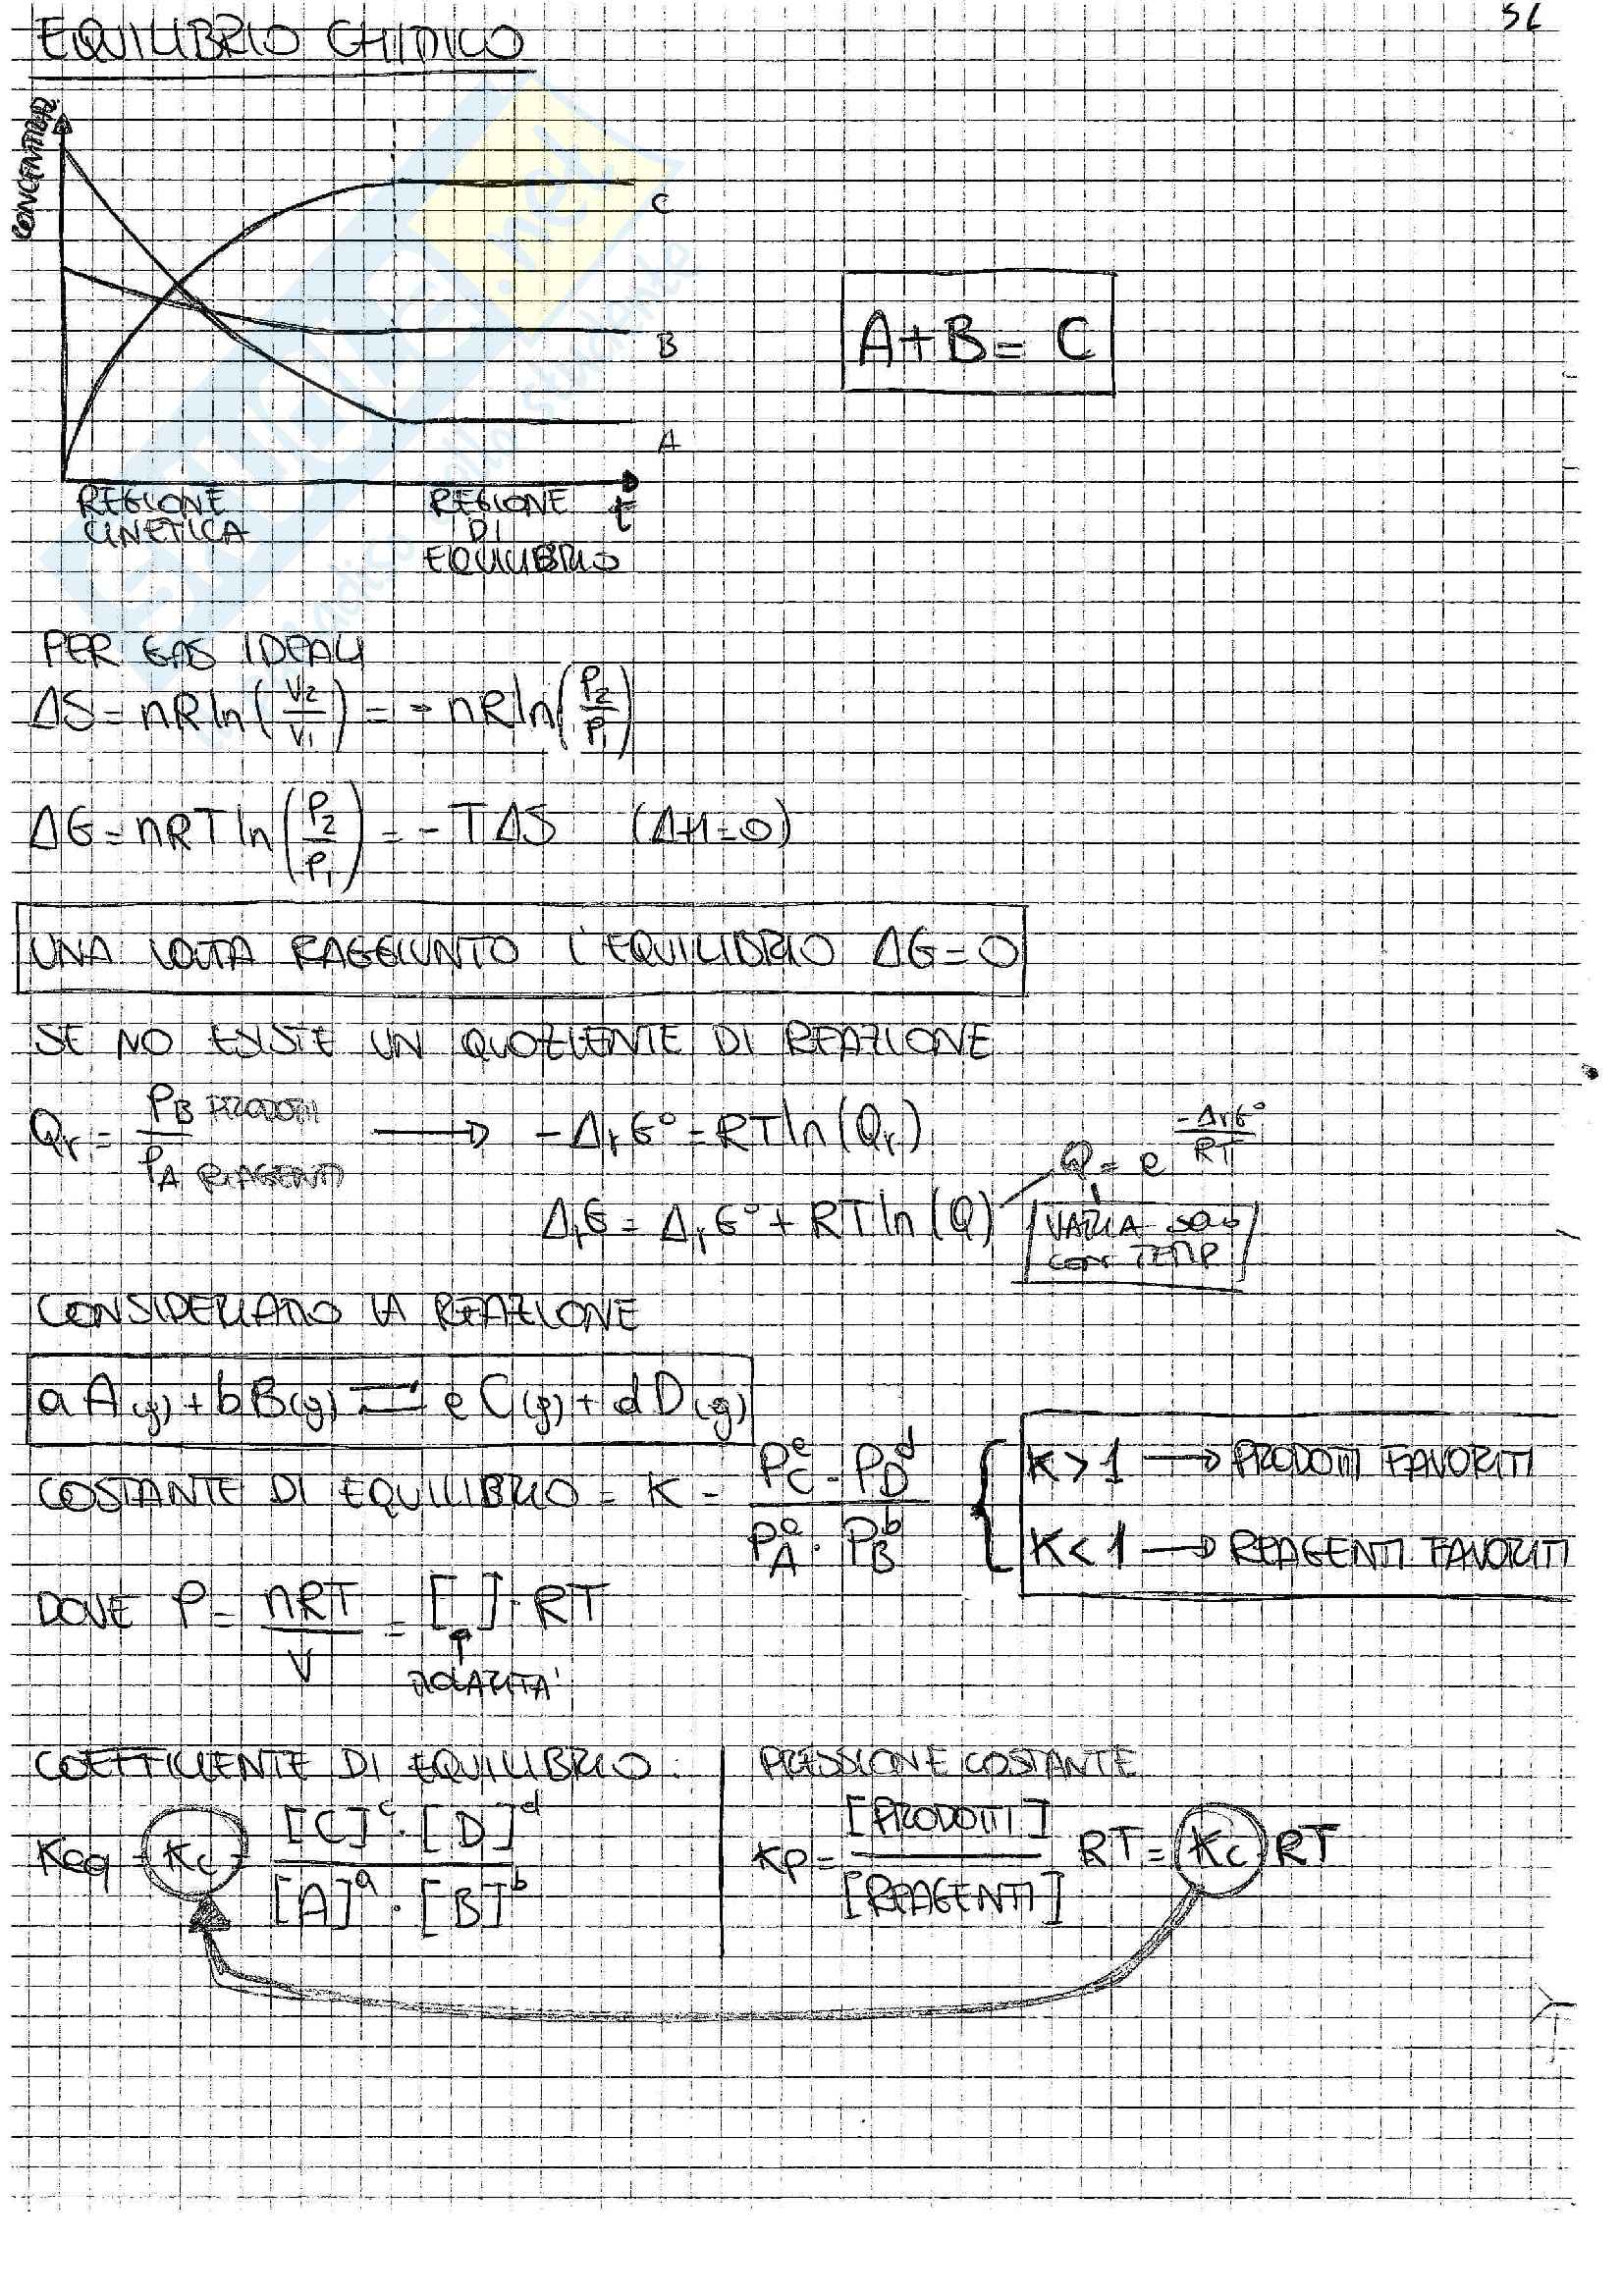 51
EQUILIBRIO CHIMICO
CONCENTRAZ
C
B
A
A+B= C
REGIONE CINETICA
REGIONE DI EQUILIBRIO
t
PER GAS IDEALI
ΔS = nR ln(V2/V1) = - nR ln(P2/P1)
ΔG = nRT ln(P2/P1) = - TΔS (ΔH=0)
UNA VOLTA RAGGIUNTO L'EQUILIBRIO ΔG=0
SE NO ESISTE UN QUOZIENTE DI REAZIONE
Qr = PB PRODOTTI / PA REAGENTI → -ΔrG° = RT ln(Qr)
Q = e^(-ΔrG°/RT)
ΔrG = ΔrG° + RT ln(Q)
VARIA SOLO
CON TEMP
CONSIDERIAMO LA REAZIONE
aA(g) + bB(g) ⇌ eC(g) + dD(g)
COSTANTE DI EQUILIBRIO = K = PC^e · PD^d / PA^a · PB^b
K > 1 → PRODOTTI FAVORITI
K < 1 → REAGENTI FAVORITI
DOVE P = nRT/V = [ ]·RT
MOLARITA'
COEFFICIENTE DI EQUILIBRIO:
Keq = Kc = [C]^c · [D]^d / [A]^a · [B]^b
PRESSIONE COSTANTE
Kp = [PRODOTTI] / [REAGENTI] RT = Kc RT